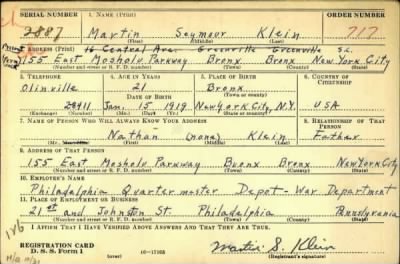 SERIAL NUMBER 1. NAME (Print) ORDER NUMBER
2887 Martin Seymour Klein 717
(First) (Middle) (Last)
2. ADDRESS (Print) 16 Central Ave. Greenville Greenville S.C.
155 East Mosholu Parkway Bronx Bronx New York City
(Number and street or R. F. D. number) (Town) (County) (State)
3. TELEPHONE 4. AGE IN YEARS 5. PLACE OF BIRTH 6. COUNTRY OF CITIZENSHIP
Olinville 21 Bronx
DATE OF BIRTH (Town or county)
Jan. 15 1919 New York City, N.Y. USA
(Mo.) (Day) (Yr.) (State or country)
7. NAME OF PERSON WHO WILL ALWAYS KNOW YOUR ADDRESS 8. RELATIONSHIP OF THAT PERSON
Nathan (none) Klein Father
(First) (Middle) (Last)
9. ADDRESS OF THAT PERSON
155 East Mosholu Parkway Bronx Bronx New York City
(Number and street or R. F. D. number) (Town) (County) (State)
10. EMPLOYER'S NAME
Philadelphia Quartermaster Depot - War Department
11. PLACE OF EMPLOYMENT OR BUSINESS
21st and Johnston St. Philadelphia Pennsylvania
(Number and street or R. F. D. number) (Town) (County) (State)
I AFFIRM THAT I HAVE VERIFIED ABOVE ANSWERS AND THAT THEY ARE TRUE.
REGISTRATION CARD
D. S. S. Form 1 16-17105 Martin S. Klein
(Registrant's signature)